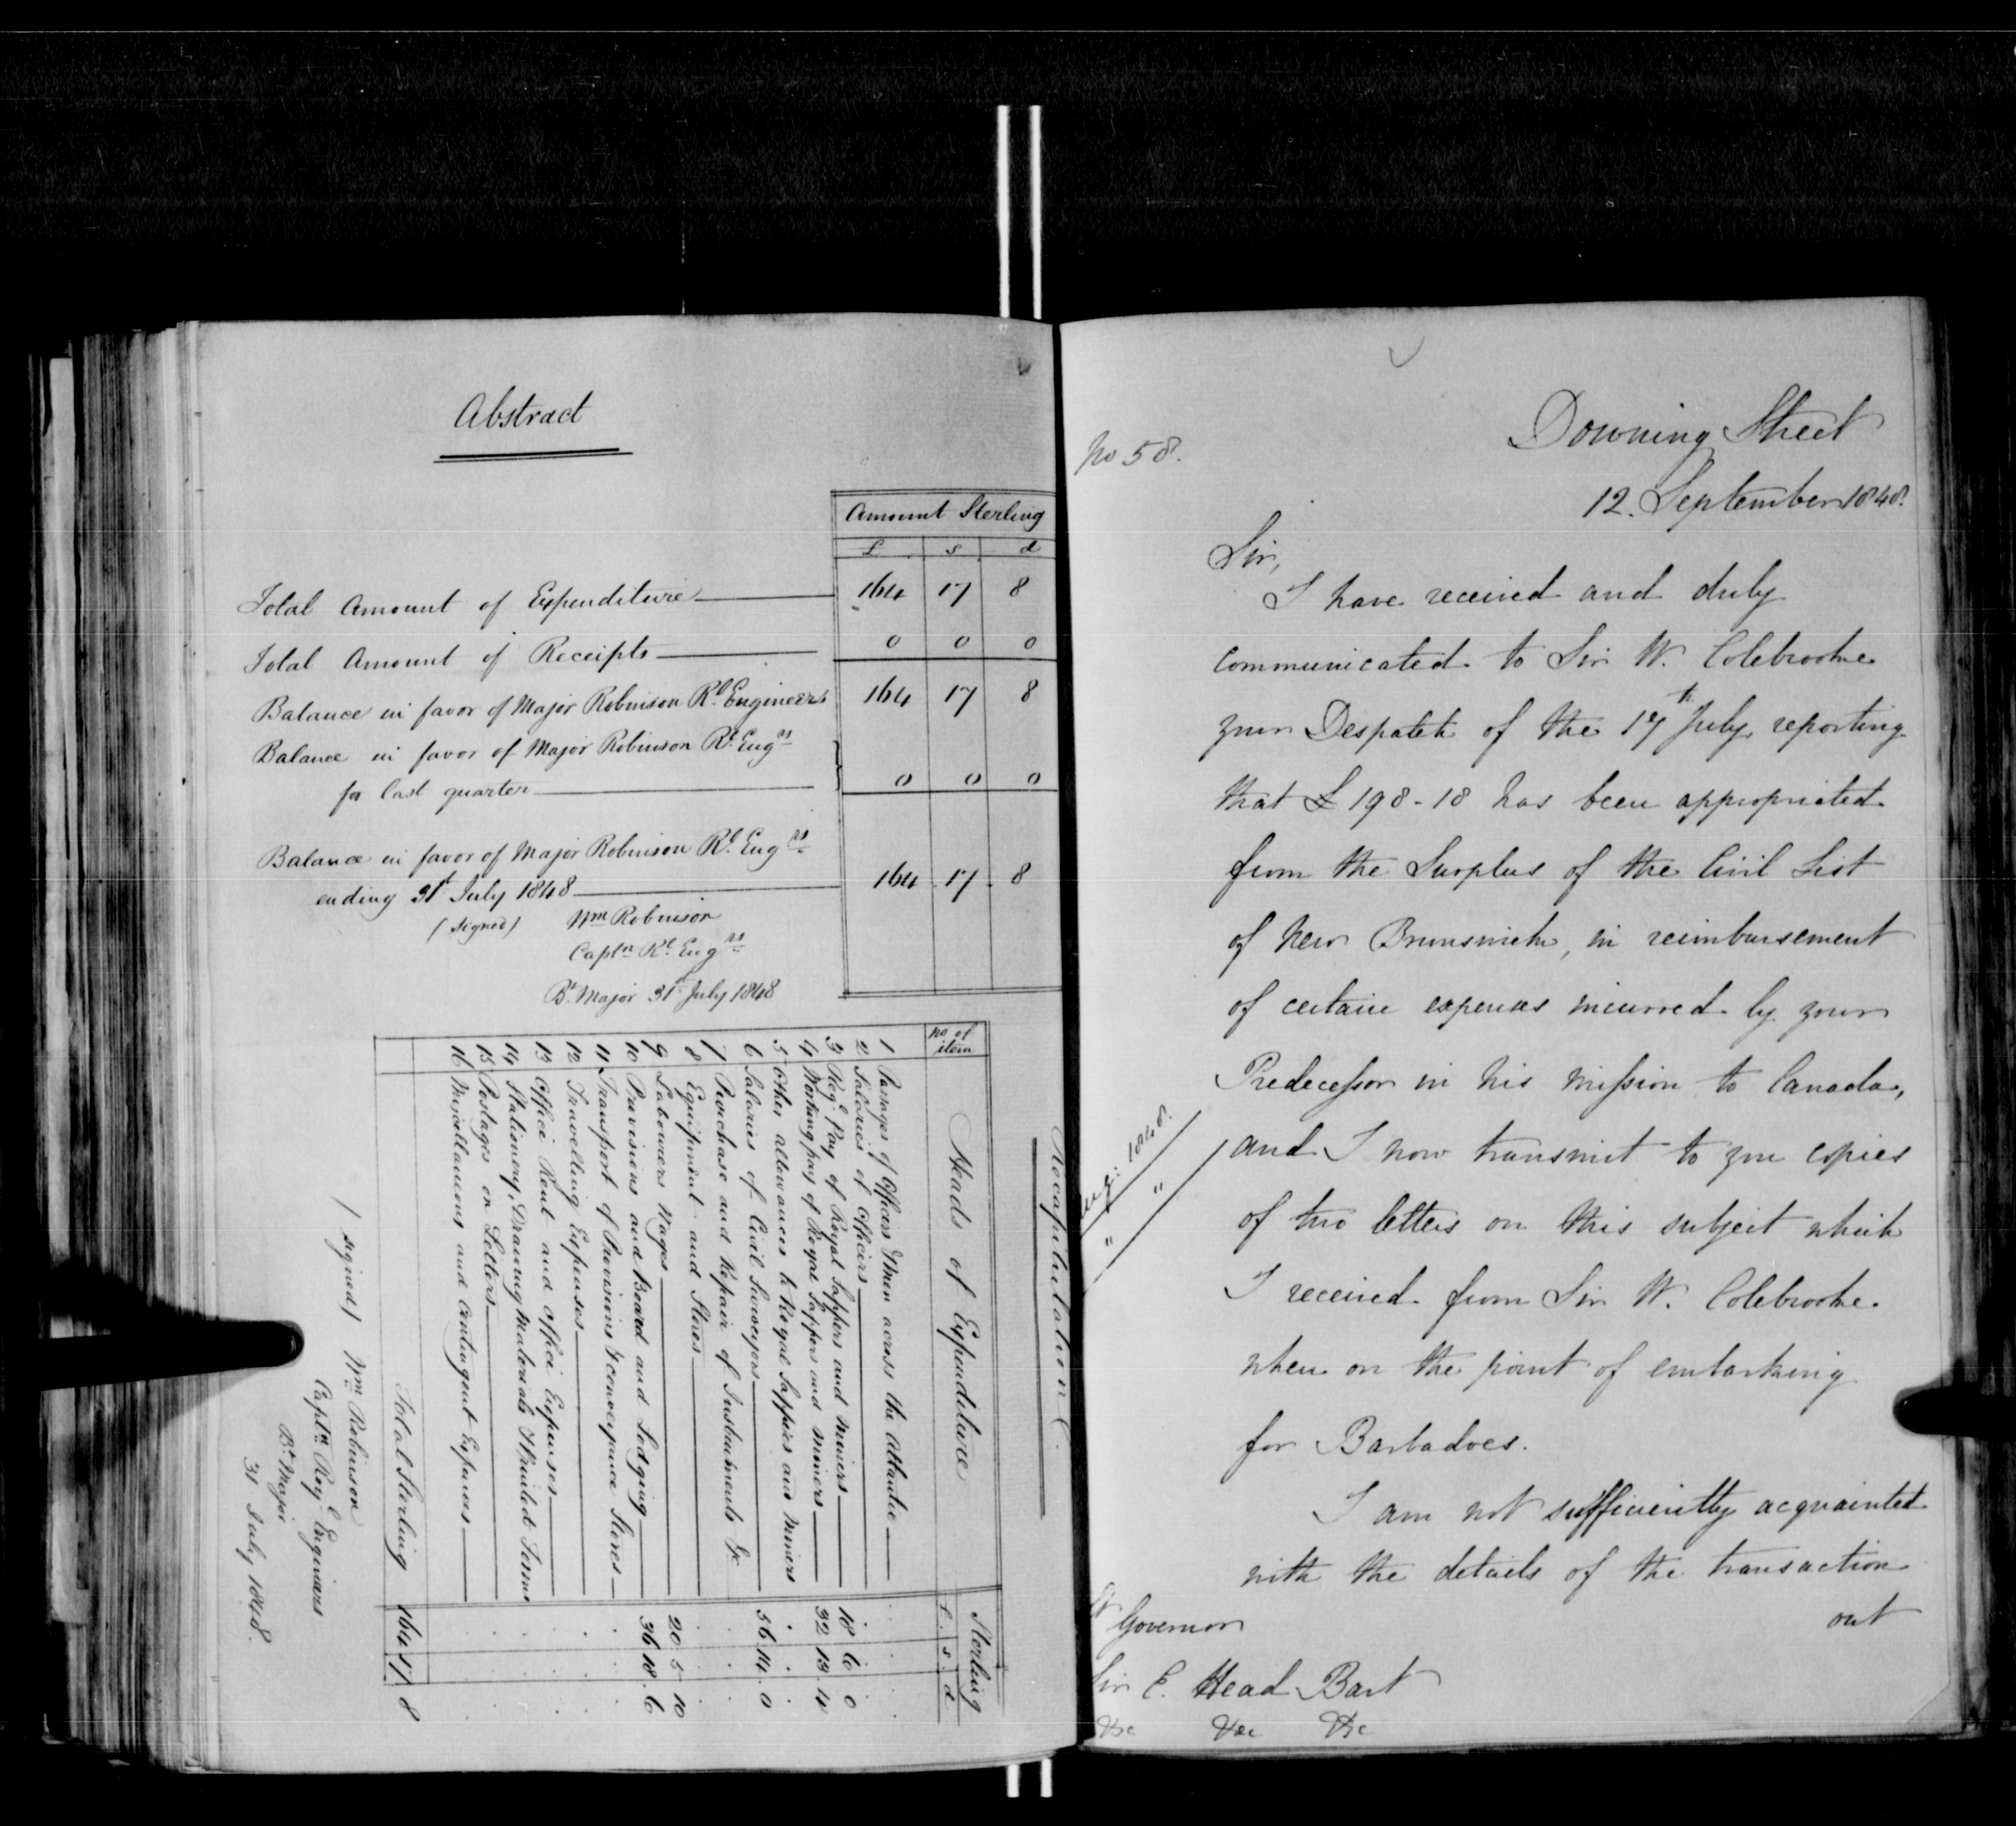 Abstract
Amount Sterling
£ s d
Total Amount of Expenditure 164 17 8
Total Amount of Receipts 0 0 0
Balance in favor of Major Robinson Rl. Engineers 164 17 8
Balance in favor of Major Robinson Rl. Engrs
for last quarter 0 0 0
Balance in favor of Major Robinson Rl. Engrs
ending 31st July 1848 164 17 8
(signed) Wm Robinson
Captn Rl. Engrs
Bt. Major 31st July 1848
Recapitulation
No of item Heads of Expenditure Sterling
£. s. d.
1 Passages of Officers & Men across the Atlantic
2 Salaries of Officers
3 Regl. Pay of Royal Sappers and Miners 18 6 0
4 Working pay of Royal Sappers and Miners 32 13 4
5 Other allowances to Royal Sappers and Miners
6 Salaries of Civil Surveyors 56 14 0
7 Purchase and Repair of Instruments &c
8 Equipment and Stores
9 Labourers Wages 20 5 10
10 Provisions and Board and Lodging 36 18 6
11 Transport of Provisions & conveyance Stores
12 Travelling Expenses
13 Office Rent and office Expenses
14 Stationery, Drawing Materials & Printed Forms
15 Postages on Letters
16 Miscellaneous and Contingent Expenses
Total Sterling 164 17 8
(signed) Wm Robinson
Captn Royl Engineers
Bt. Major
31 July 1848.
No 58.
Downing Street
12. September 1848.
Sir,
I have received and duly
communicated to Sir W. Colebrooke
your Despatch of the 17th July, reporting
that £198-18 has been appropriated
from the Surplus of the Civil List
of New Brunswick, in reimbursement
of certain expenses incurred by your
Predecessor in his mission to Canada,
and I now transmit to you copies
of two letters on this subject which
I received from Sir W. Colebrooke
when on the point of embarking
for Barbadoes.
1848.
" "
I am not sufficiently acquainted
with the details of the transaction
out
Lt Governor
Sir E. Head Bart
&c &c &c